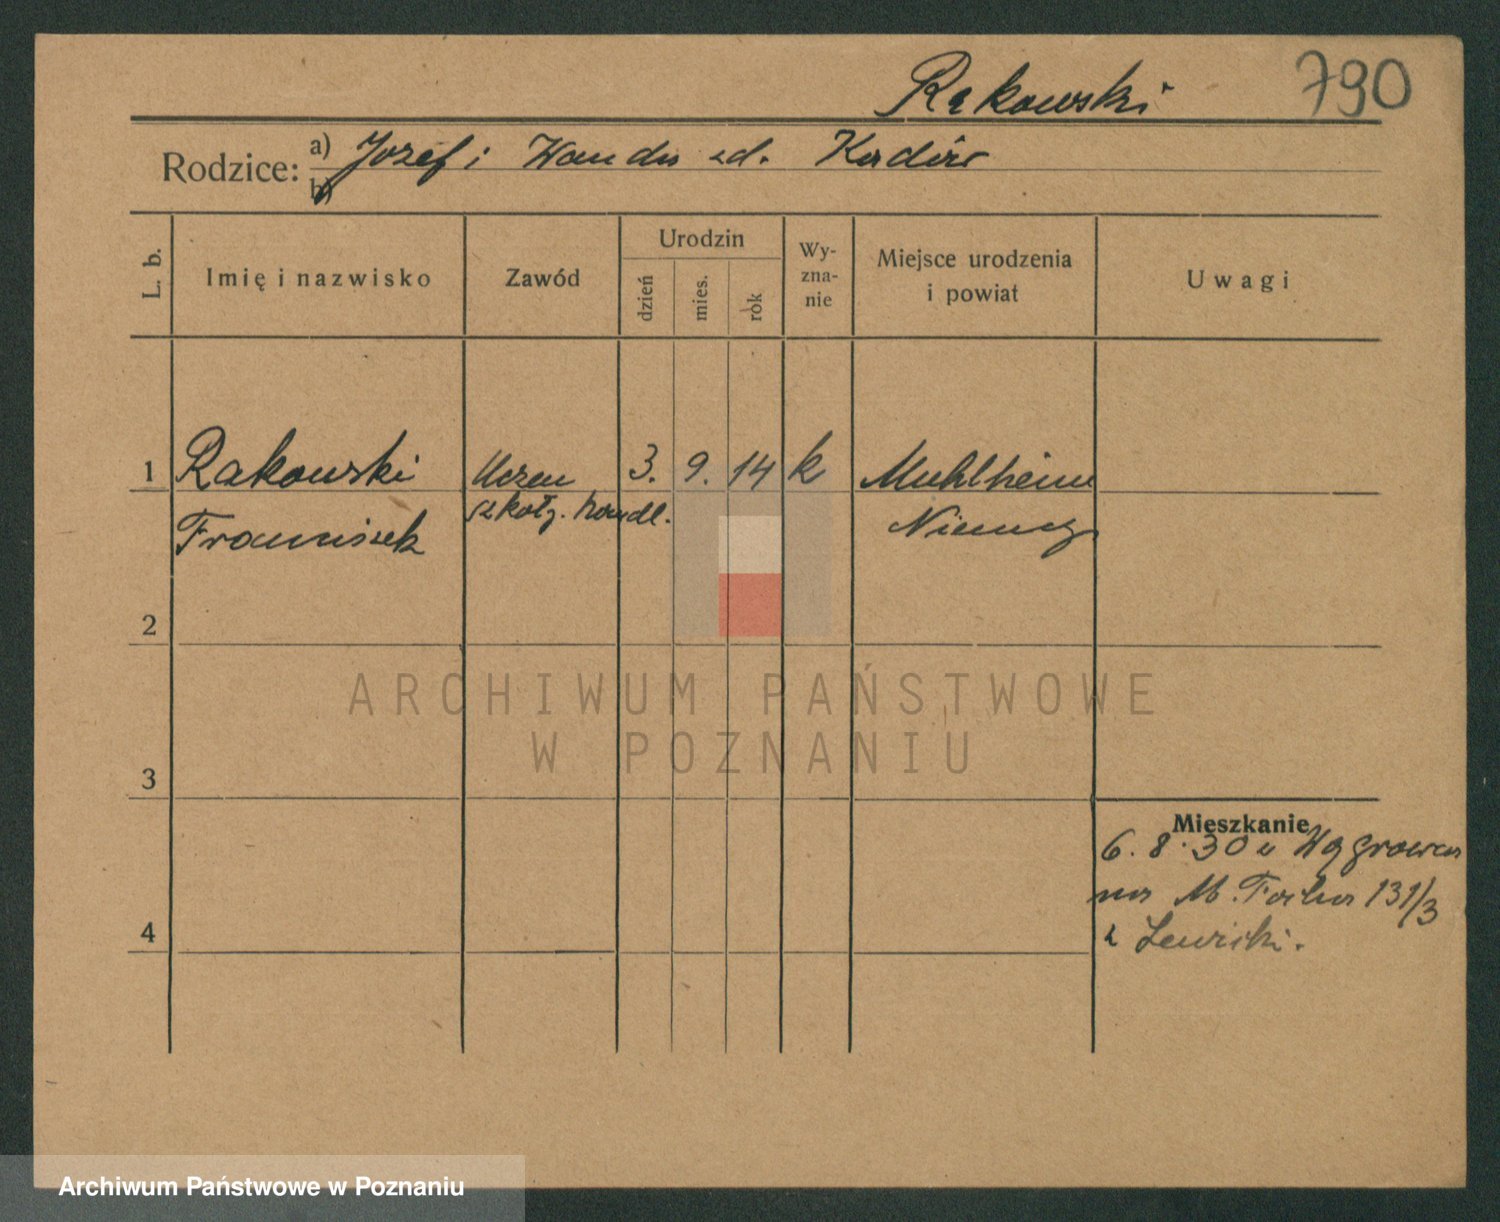 Rakowski 790
Rodzice: a) Józef i Wanda zd.
b)
L. b. Imię i nazwisko Zawód Urodzin dzień mies. rok Wy-zna-nie Miejsce urodzenia i powiat Uwagi
1 Rakowski Uczeń 3. 9. 14 k Muhlheim
Franciszek szkoły. handl. Niemcy
2
ARCHIWUM PAŃSTWOWE
W POZNANIU
3
Mieszkanie
6. 8. 30 z Wągrowca
na M. Focha 131/3
4
Archiwum Państwowe w Poznaniu